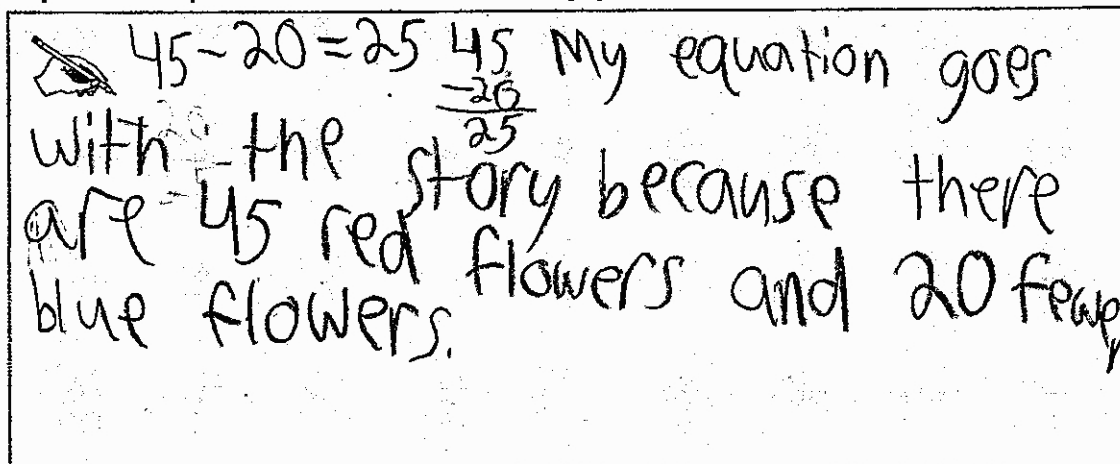 45-20=25 45 My equation goes
-20
25
with the story because there
are 45 red flowers and 20 fewer
blue flowers.